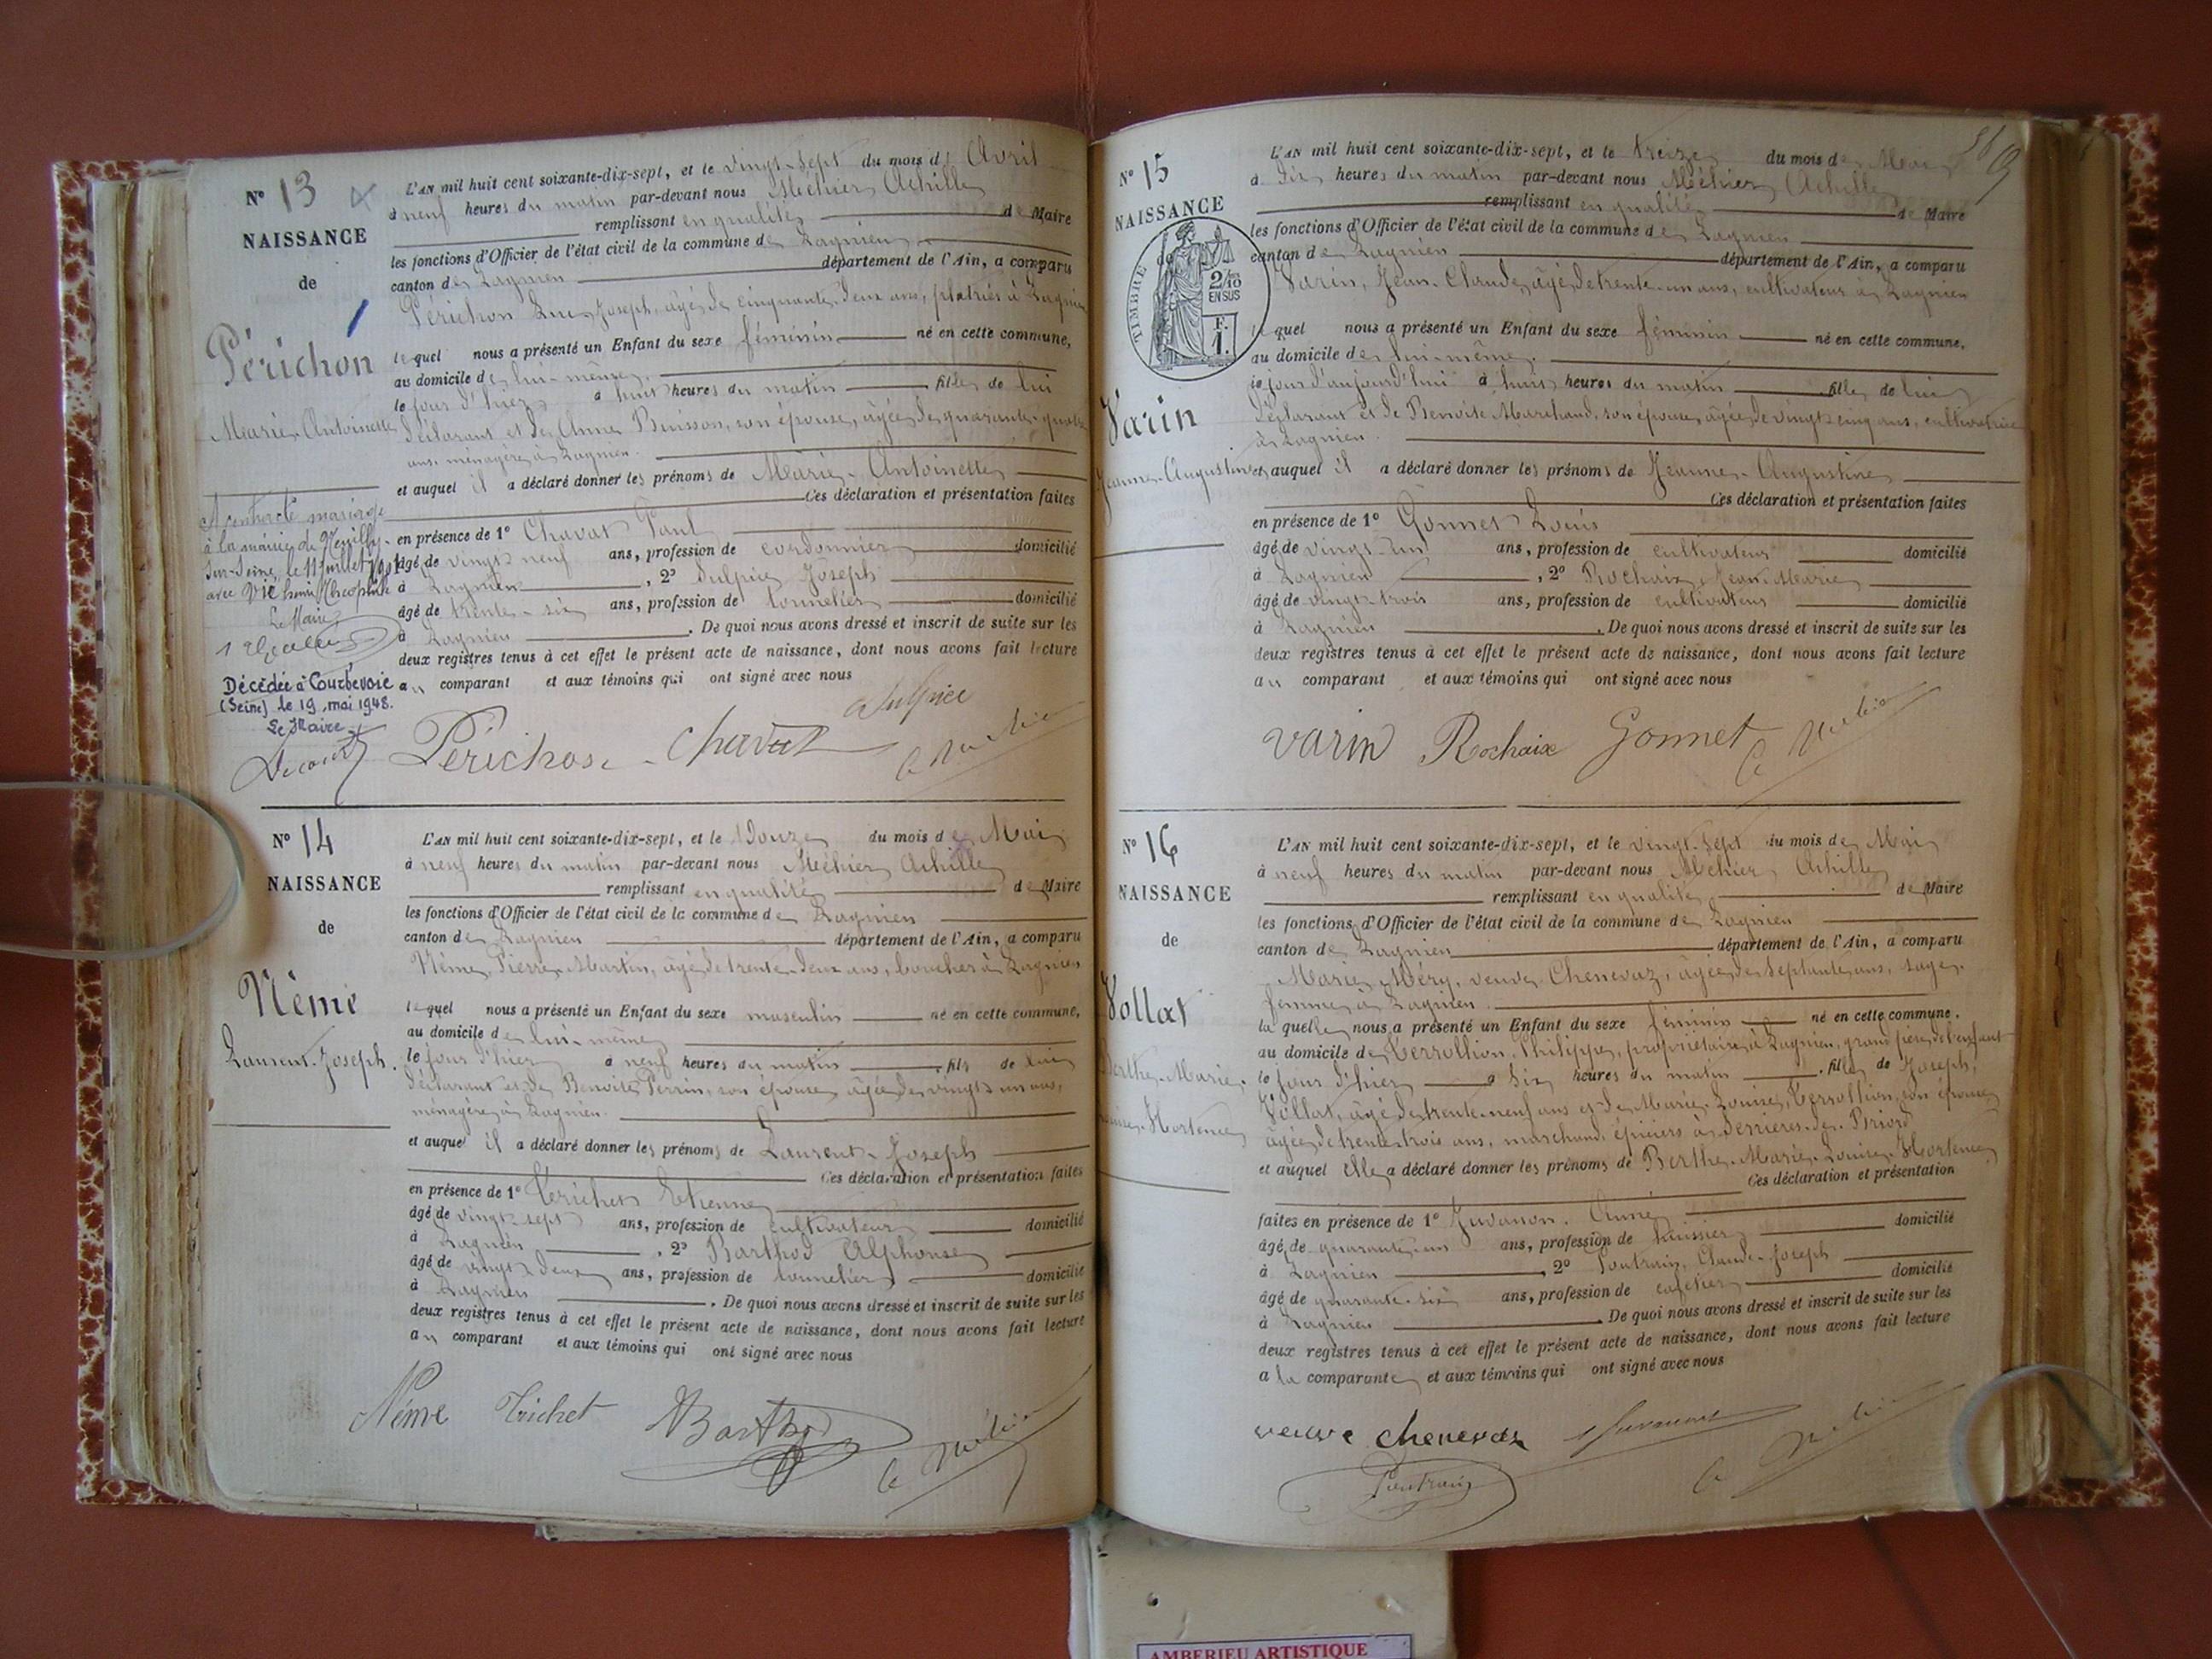 N° 13
NAISSANCE
de
Périchon
Marie-Antoinette
A contracté mariage
à la mairie de Neuilly-
sur-Seine, le 11 juillet
avec Vié
Le Maire
Décédée à Courbevoie
(Seine) le 19 mai 1948.
Le Maire
L'AN mil huit cent soixante-dix-sept, et le vingt-sept du mois d' Avril
à neuf heures du matin par-devant nous Méhier Achille
remplissant en qualité de Maire
les fonctions d'Officier de l'état civil de la commune de Lagnieu
canton de Lagnieu département de l'Ain, a comparu
Périchon Luc-Joseph, âgé de cinquante-deux ans, plâtrier à Lagnieu
lequel nous a présenté un Enfant du sexe féminin né en cette commune,
au domicile de lui-même,
le jour d'hier à huit heures du matin fille de lui
déclarant et de Anne Buisson, son épouse, âgée de quarante-quatre
ans, ménagère à Lagnieu.
et auquel il a déclaré donner les prénoms de Marie-Antoinette
Ces déclaration et présentation faites
en présence de 1° Chavat Paul
âgé de vingt-neuf ans, profession de cordonnier domicilié
à Lagnieu, 2° Sulpice Joseph
âgé de trente-six ans, profession de tonnelier domicilié
à Lagnieu. De quoi nous avons dressé et inscrit de suite sur les
deux registres tenus à cet effet le présent acte de naissance, dont nous avons fait lecture
au comparant et aux témoins qui ont signé avec nous
Périchon Chavat Sulpice A Méhier
N° 14
NAISSANCE
de
Nême
Laurent-Joseph.
L'AN mil huit cent soixante-dix-sept, et le Douze du mois de Mai
à neuf heures du matin par-devant nous Méhier Achille
remplissant en qualité de Maire
les fonctions d'Officier de l'état civil de la commune de Lagnieu
canton de Lagnieu département de l'Ain, a comparu
Nême, Pierre-Martin, âgé de trente-deux ans, boucher à Lagnieu
lequel nous a présenté un Enfant du sexe masculin né en cette commune,
au domicile de lui-même
le jour d'hier à neuf heures du matin fils de lui
déclarant et de Benoîte Perrin, son épouse âgée de vingt-un ans,
ménagère à Lagnieu.
et auquel il a déclaré donner les prénoms de Laurent-Joseph
Ces déclaration et présentation faites
en présence de 1° Trichet Etienne
âgé de vingt-sept ans, profession de cultivateur domicilié
à Lagnieu, 2° Barthod Alphonse
âgé de vingt-deux ans, profession de tonnelier domicilié
à Lagnieu. De quoi nous avons dressé et inscrit de suite sur les
deux registres tenus à cet effet le présent acte de naissance, dont nous avons fait lecture
au comparant et aux témoins qui ont signé avec nous
Nême Trichet Barthod A Méhier
N° 15
NAISSANCE
de
TIMBRE
2/10
EN SUS
F.
1.
Varin
Jeanne-Augustine
L'AN mil huit cent soixante-dix-sept, et le treize du mois de Mai
à dix heures du matin par-devant nous Méhier Achille
remplissant en qualité de Maire
les fonctions d'Officier de l'état civil de la commune de Lagnieu
canton de Lagnieu département de l'Ain, a comparu
Varin, Jean-Claude, âgé de trente-un ans, cultivateur à Lagnieu
lequel nous a présenté un Enfant du sexe féminin né en cette commune,
au domicile de lui-même.
le jour d'aujourd'hui à huit heures du matin fille de lui
déclarant et de Benoîte Marchand, son épouse, âgée de vingt-cinq ans, cultivatrice
à Lagnieu.
et auquel il a déclaré donner les prénoms de Jeanne-Augustine
Ces déclaration et présentation faites
en présence de 1° Gonnet Louis
âgé de vingt-un ans, profession de cultivateur domicilié
à Lagnieu, 2° Rochaix, Jean-Marie
âgé de vingt-trois ans, profession de cultivateur domicilié
à Lagnieu. De quoi nous avons dressé et inscrit de suite sur les
deux registres tenus à cet effet le présent acte de naissance, dont nous avons fait lecture
au comparant et aux témoins qui ont signé avec nous
varin Rochaix Gonnet A Méhier
N° 16
NAISSANCE
de
Vollat
Berthe-Marie-
Louise-Hortence
L'AN mil huit cent soixante-dix-sept, et le vingt-sept du mois de Mai
à neuf heures du matin par-devant nous Méhier Achille
remplissant en qualité de Maire
les fonctions d'Officier de l'état civil de la commune de Lagnieu
canton de Lagnieu département de l'Ain, a comparu
Marie Méry, veuve Chenevaz, âgée de septante ans, sage-
femme à Lagnieu.
laquelle nous a présenté un Enfant du sexe féminin né en cette commune.
au domicile de Verrollion, Philippe, propriétaire à Lagnieu, grand père de l'enfant
le jour d'hier à six heures du matin fille de Joseph,
Vollat, âgé de trente-neuf ans et de Marie-Louise, Verrollion, son épouse
âgée de trente-trois ans, marchands épiciers à Serrières-de-Briord
et auquel elle a déclaré donner les prénoms de Berthe-Marie-Louise-Hortence
Ces déclaration et présentation
faites en présence de 1° Juvanon, Aimé
âgé de quarante-un ans, profession de huissier domicilié
à Lagnieu, 2° Poutrain, Claude-Joseph
âgé de quarante-six ans, profession de cafetier domicilié
à Lagnieu. De quoi nous avons dressé et inscrit de suite sur les
deux registres tenus à cet effet le présent acte de naissance, dont nous avons fait lecture
à la comparante et aux témoins qui ont signé avec nous
veuve chenevaz Juvanon
Poutrain A Méhier
AMBERIEU ARTISTIQUE